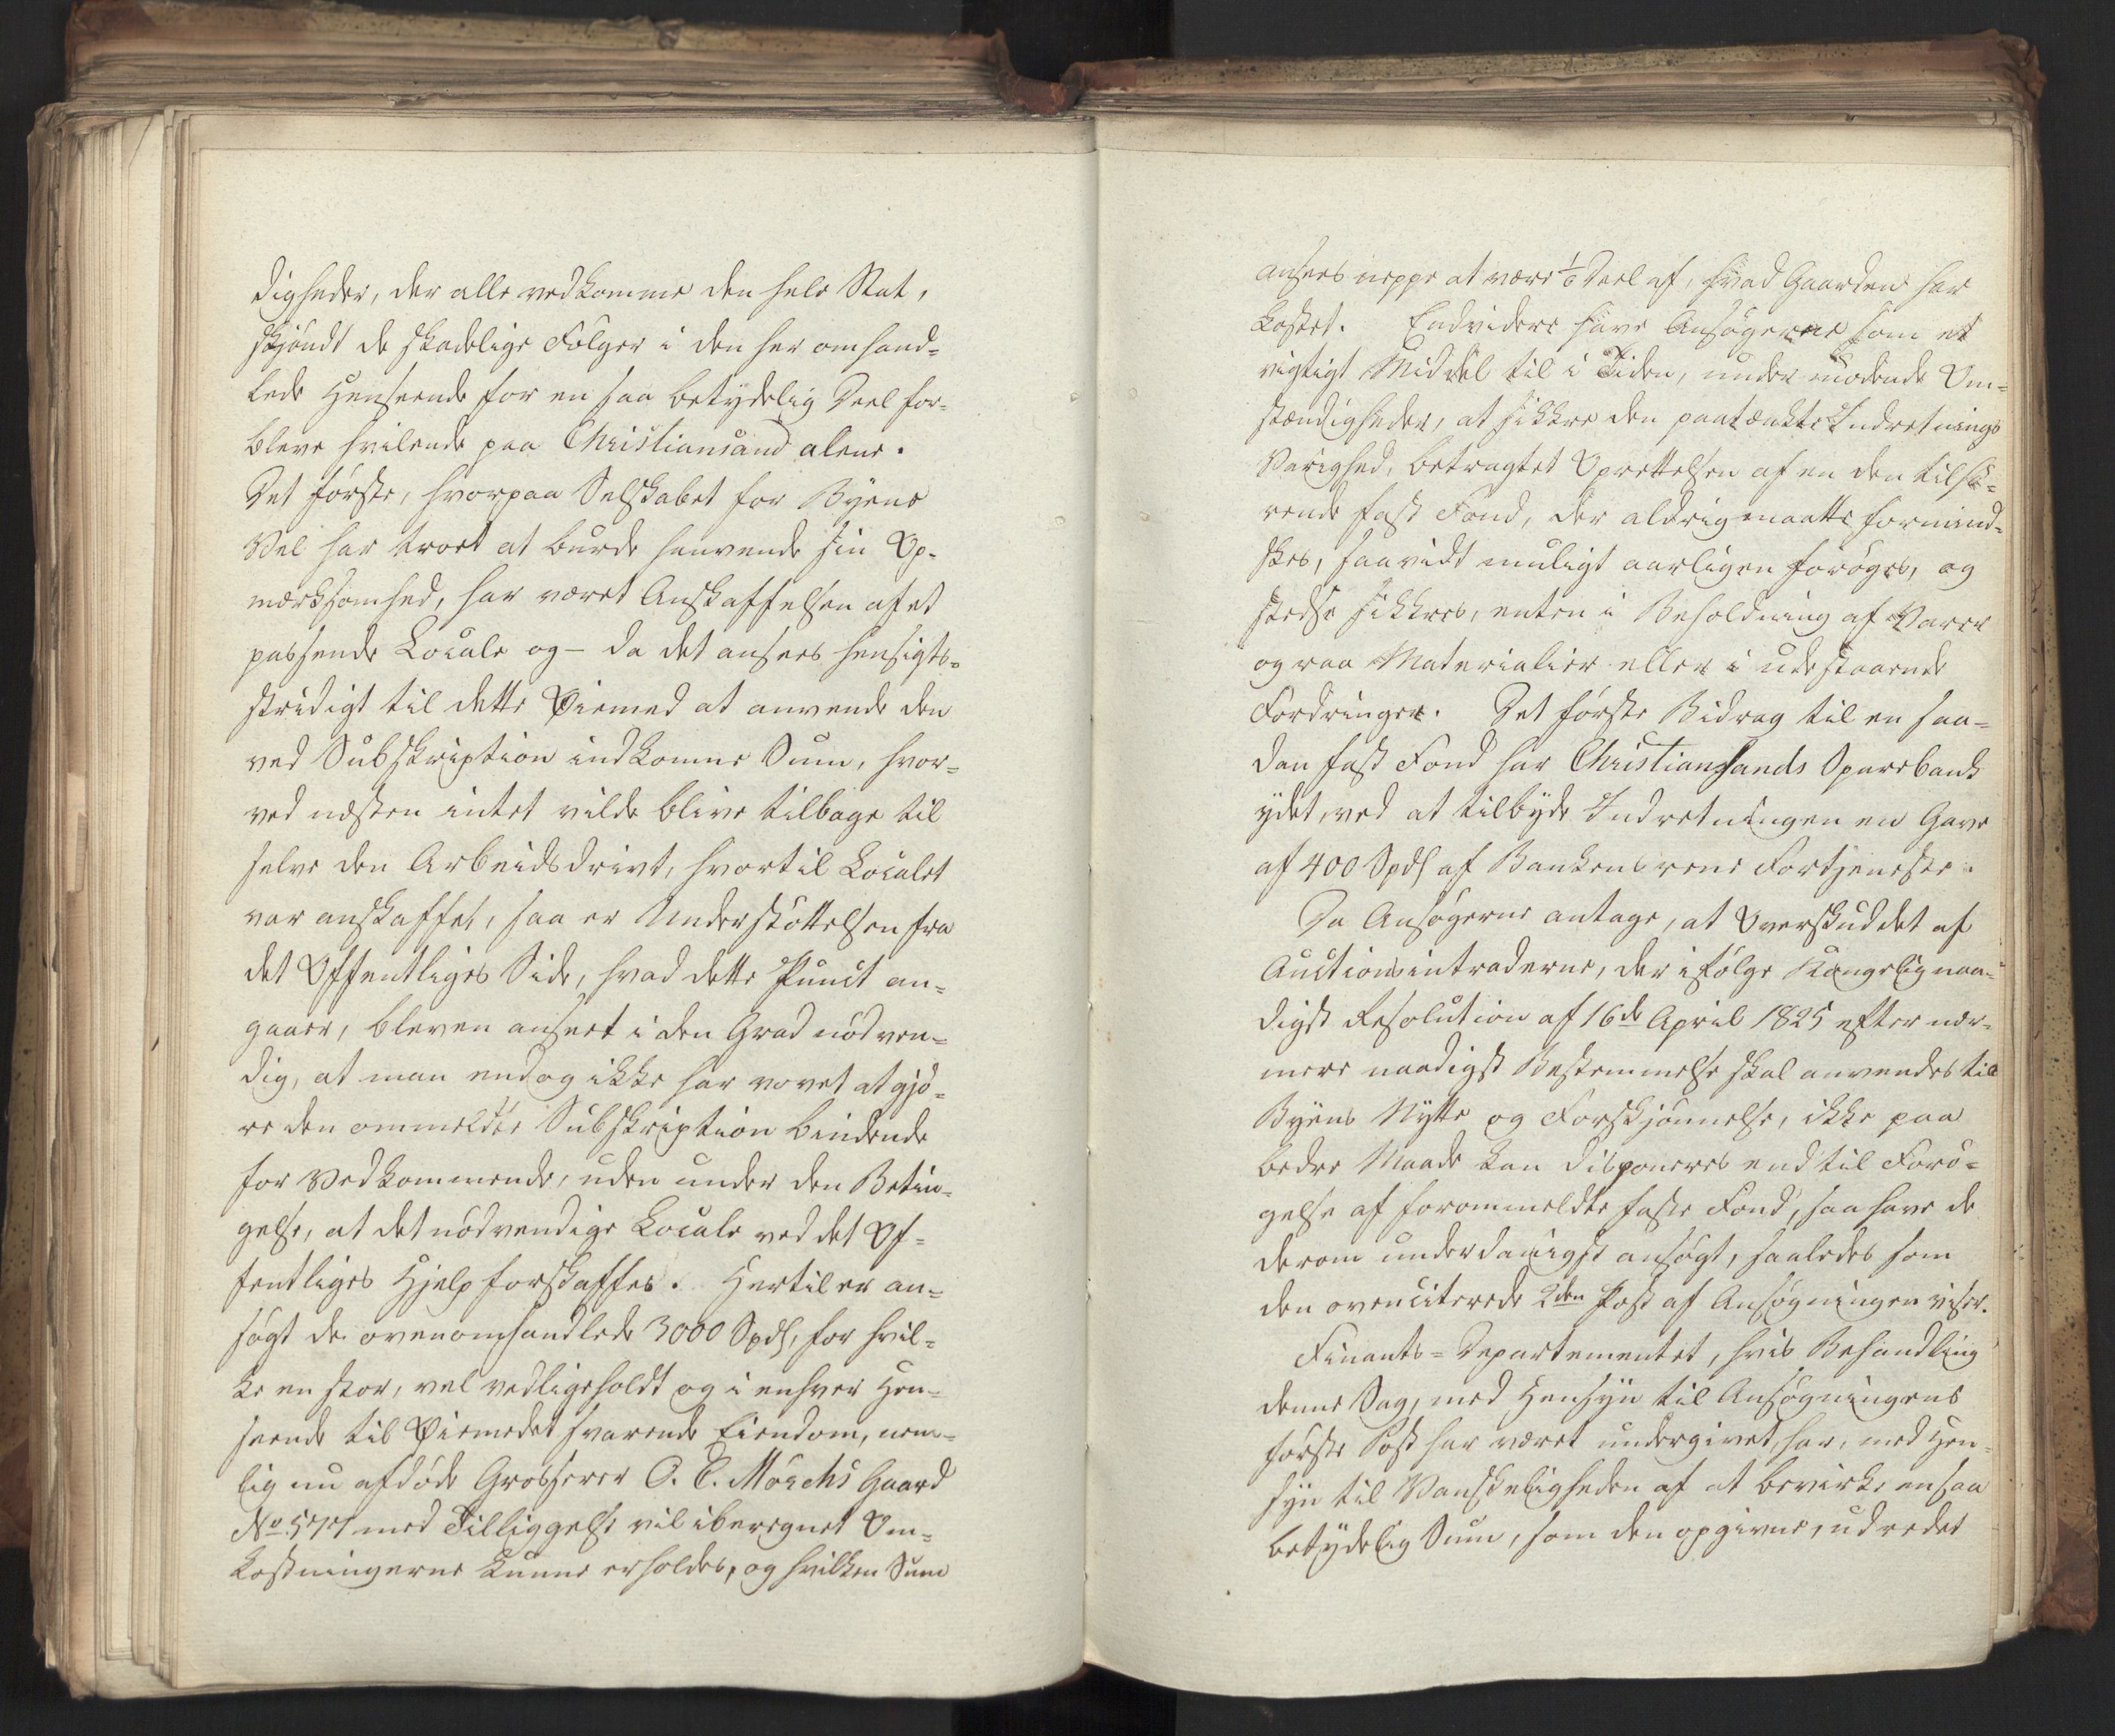 digheder, der alle vedkomme den hele Stat,
skjöndt de skadelige Fölger i den her omhand-
lede Henseende for en saa betydelig Deel for-
bleve hvilende paa Christiansand alene.
Det förste, hvorpaa Selskabet for Byens
Vel har troet at burde henvende sin Op-
mærksomhed, har været Anskaffelsen af et
passende Locale og - da det ansees hensigts-
stridigt til dette Øiemed at anvende den
ved Subskription indkomne Sum, hvor-
ved næsten intet vilde blive tilbage til
selve den Arbeidsdrivt, hvortil Localet
var anskaffet, saa er Understöttelsen fra
det Offentliges Side, hvad dette Punct an-
gaaer, bleven anseet i den Grad nödven-
dig, at man endog ikke har vovet at gjö-
re den ommeldte Subskription bindende
for Vedkommende, uden under den Betin-
gelse, at det nödvendige Locale ved det Of-
fentliges Hjelp forskaffes. Hertil er an-
sögt de ovenomhandlede 3000 Spdl, for hvil-
ke en stor, vel vedligeholdt og i enhver Hen-
seende til Øiemedet svarende Eiendom, nem-
lig nu afdöde Grosserer O. C. Mörchs Gaard
No 577 med Tilliggelse vil iberegnet Om-
kostningerne kunne erholdes, og hvilken Sum
ansees neppe at være 1/6 Deel af, hvad Gaarden har
kostet. Endvidere have Ansögerne som et
vigtigt Middel til i Tiden, under mödende Om-
stændigheder, at sikkre den paatænkte Indretnings
Varighed, betragtet Oprettelsen af en den tilhö-
rende fast Fond, der aldrig maatte formind-
skes, saavidt muligt aarligen foröges, og
stedse sikkres, enten i Beholdning af Varer
og raa Materialier eller i udestaaende
Fordringer. Det förste Bidrag til en saa-
dan fast Fond har Christiansands Sparebank
ydet, ved at tilbyde Indretningen en Gave
af 400 Spdl af Bankens rene Fortjeneste.
Da Ansögerne antage, at Overskuddet af
Auctionsintraderne, der ifölge Kongelig naa-
digst Resolution af 16de April 1825 efter nær-
mere naadigst Bestemmelse skal anvendes til
Byens Nytte og Forskjönnelse, ikke paa
bedre Maade kan disponeres end til Forö-
gelse af forommeldte faste Fond, saa have de
derom underdanigst ansögt, saaledes som
den ovenciterede 2den Post af Ansögningen viser.
Finants-Departementet, hvis Behandling
denne Sag, med Hensyn til Ansögningens
förste Post har været undergivet, har, med Hen-
syn til Vanskeligheden af at bevirke en saa
betydelig Sum, som den opgivne, udredet